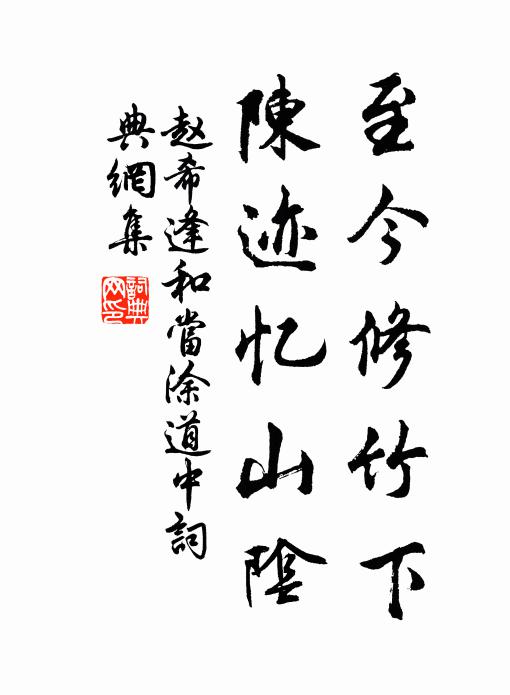 至今修竹下
陳迹忆山陰
赵希逢和當涂道中詞
典網集
詞典网印